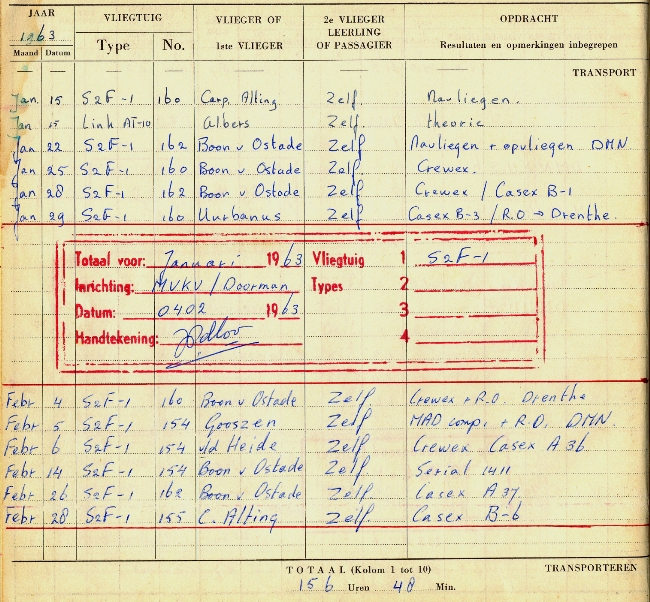 JAAR VLIEGTUIG VLIEGER OF 2e VLIEGER OPDRACHT
1963 LEERLING
Maand Datum Type No. 1ste VLIEGER OF PASSAGIER Resultaten en opmerkingen inbegrepen
TRANSPORT
Jan. 15 S2F-1 160 Carp. Alting Zelf. Navliegen.
Jan 15 Link AT-10 Albers Zelf. theorie
Jan 22 S2F-1 162 Boon v Ostade Zelf Navliegen + opvliegen DMN
Jan 25 S2F-1 160 Boon v Ostade Zelf Crewex.
Jan 28 S2F-1 162 Boon v Ostade Zelf Crewex / Casex B-1
Jan 29 S2F-1 160 Uurbanus Zelf Casex B-3 / R.O → Drenthe.
Totaal voor: Januari 1963 Vliegtuig 1 S2F-1
Inrichting: MVKV / Doorman Types 2
Datum: 0402 1963 3
Handtekening: 4
Febr 4 S2F-1 160 Boon v Ostade Zelf Crewex + R.O. Drenthe
Febr 5 S2F-1 154 Gooszen Zelf MAD comp. + R.O. DMN.
Febr 6 S2F-1 154 v/d Heide Zelf Crewex Casex A 36.
Febr 14 S2F-1 154 Boon v Ostade Zelf Serial 1411
Febr 26 S2F-1 162 Boon v Ostade Zelf. Casex A 37.
Febr 28 S2F-1 155 C. Alting Zelf. Casex B-6
TOTAAL (Kolom 1 tot 10) TRANSPORTEREN
156 Uren 48 Min.